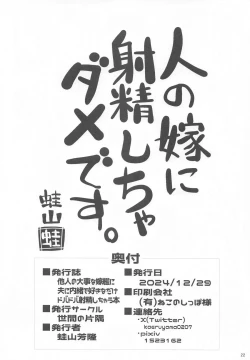 人の嫁に
射精しちゃ
ダメです。
蛙山
蛙
奥付
■発行誌
他人の大事な嫁膣に
夫に内緒で好きなだけ
ドバドバ射精しちゃう本
■発行サークル
世間の片隅
■発行者
蛙山芳隆
■発行日
2024/12/29
■印刷会社
(有)ねこのしっぽ様
■連絡先
・X(Twitter)
kaeruyama0207
・pixiv
1523162